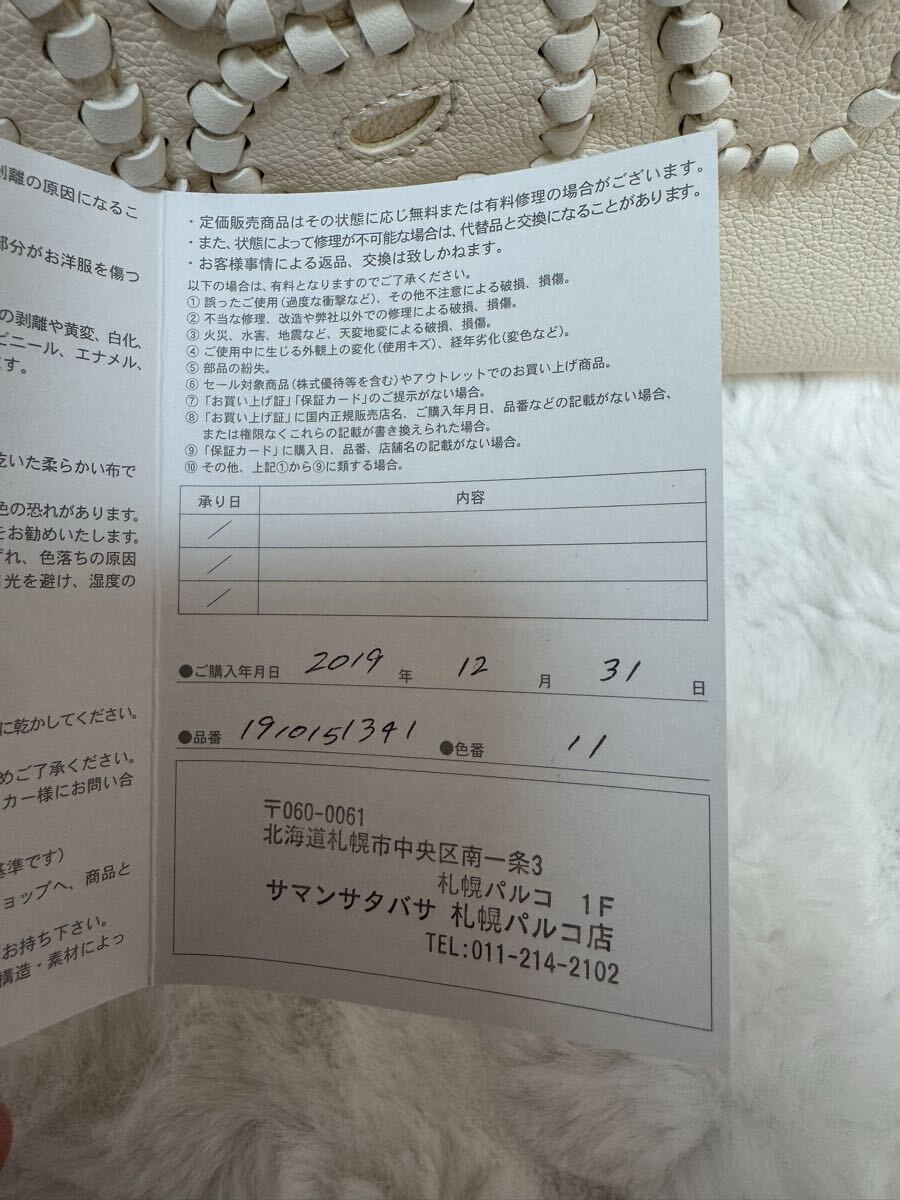 剥離の原因になるこ
部分がお洋服を傷つ
の剥離や黄変、白化、
ビニール、エナメル、
ます。
乾いた柔らかい布で
色の恐れがあります。
をお勧めいたします。
ずれ、色落ちの原因
光を避け、湿度の
に乾かしてください。
めご了承ください。
カー様にお問い合
基準です)
ョップへ、商品と
お持ち下さい。
構造・素材によっ
・定価販売商品はその状態に応じ無料または有料修理の場合がございます。
・また、状態によって修理が不可能な場合は、代替品と交換になることがあります。
・お客様事情による返品、交換は致しかねます。
以下の場合は、有料となりますのでご了承ください。
① 誤ったご使用(過度な衝撃など)、その他不注意による破損、損傷。
② 不当な修理、改造や弊社以外での修理による破損、損傷。
③ 火災、水害、地震など、天変地変による破損、損傷。
④ ご使用中に生じる外観上の変化(使用キズ)、経年劣化(変色など)。
⑤ 部品の紛失。
⑥ セール対象商品(株式優待等を含む)やアウトレットでのお買い上げ商品。
⑦「お買い上げ証」「保証カード」のご提示がない場合。
⑧「お買い上げ証」に国内正規販売店名、ご購入年月日、品番などの記載がない場合、
または権限なくこれらの記載が書き換えられた場合。
⑨「保証カード」に購入日、品番、店舗名の記載がない場合。
⑩ その他、上記①から⑨に類する場合。
承り日 内容
/
/
/
●ご購入年月日 2019 年 12 月 31 日
●品番 1910151341 ●色番 11
〒060-0061
北海道札幌市中央区南一条3
札幌パルコ 1F
サマンサタバサ 札幌パルコ店
TEL:011-214-2102